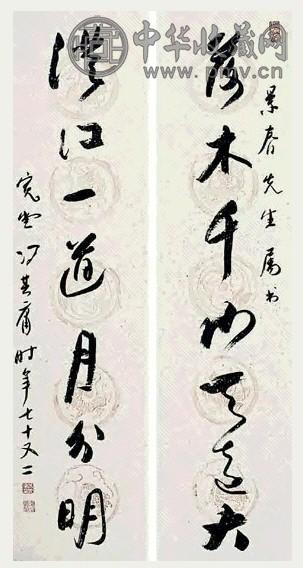 中华收藏网
www.pmv.cn
景春先生属书
落木千山天远大
澄江一道月分明
宽堂冯其庸时年七十又二